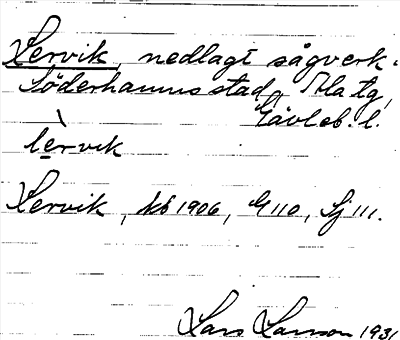 Lervik, nedlagt sågverk.
Söderhamns stad, Ala tg,
Gävleb. l.
lervik
Lervik, kb 1906, G 110, Sj 111.
Lars Larsson 1931